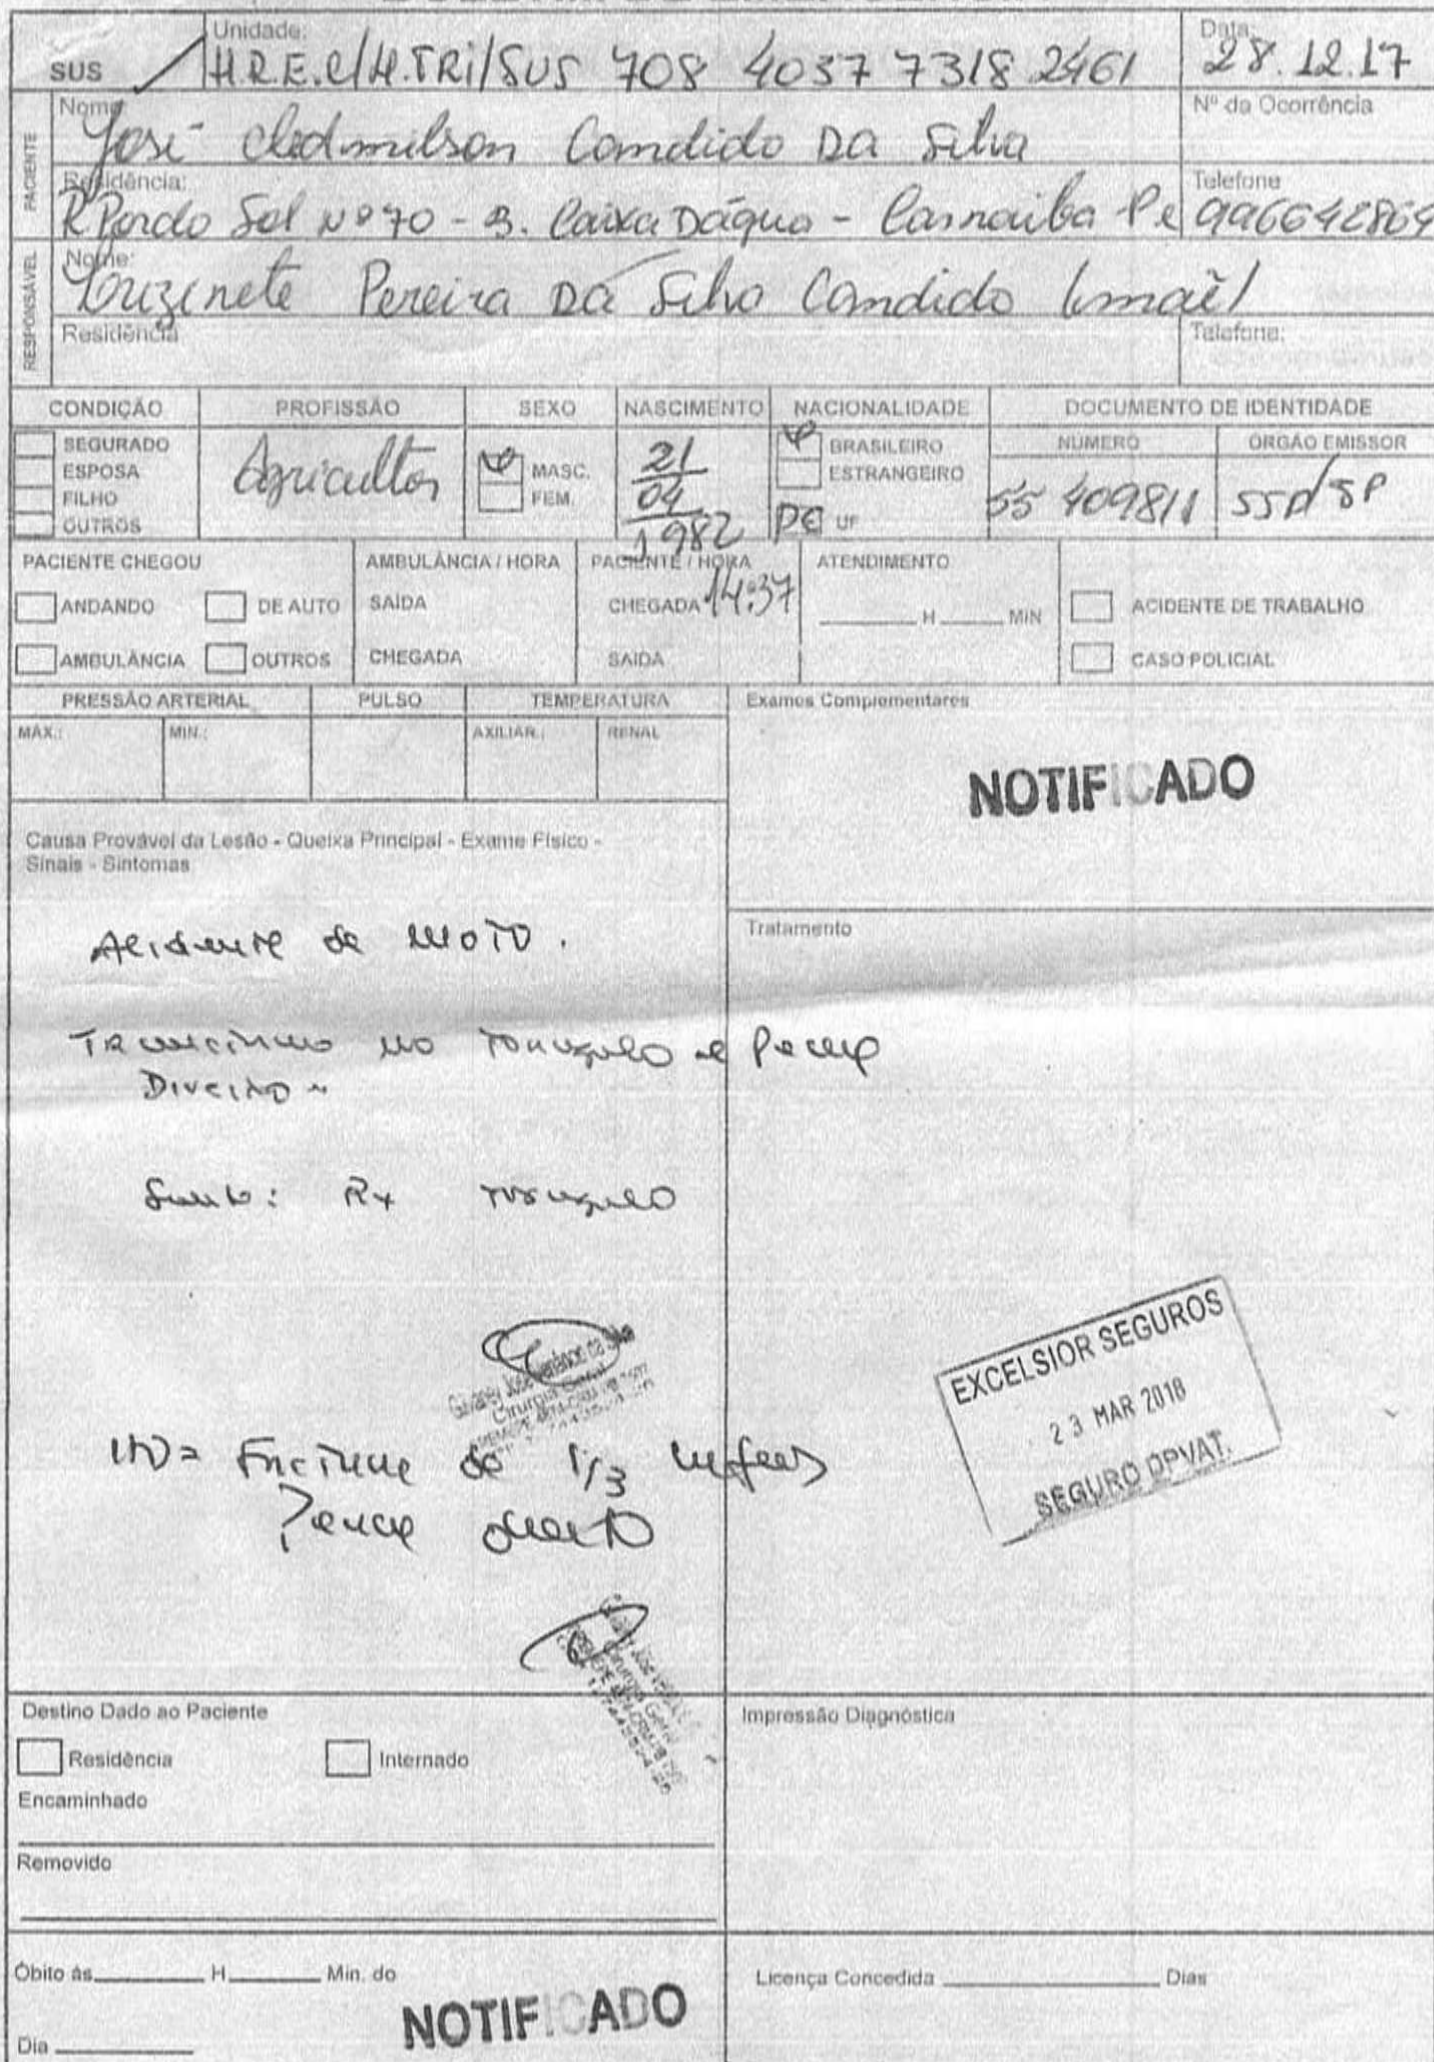 Unidade:
SUS H.R.E.C/H.TRI/SUS 708 4037 7318 2461
Data:
28.12.17
PACIENTE
Nome
José Cledmilson Candido Da Silva
Nº da Ocorrência
Residência:
R Pordo Sol Nº 70 - B. Caixa Dágua - Carnaiba Pe
Telefone
996642864
RESPONSÁVEL
Nome:
Luzinete Pereira Da Silva Candido (mãe)
Residência
Telefone:
CONDIÇÃO PROFISSÃO SEXO NASCIMENTO NACIONALIDADE DOCUMENTO DE IDENTIDADE
SEGURADO
ESPOSA
FILHO
OUTROS
Agricultor
MASC.
FEM.
21
04
1982
BRASILEIRO
ESTRANGEIRO
PE UF
NÚMERO
55 409811
ÓRGÃO EMISSOR
SSP/SP
PACIENTE CHEGOU
ANDANDO DE AUTO
AMBULÂNCIA OUTROS
AMBULÂNCIA / HORA
SAÍDA
CHEGADA
PACIENTE / HORA
CHEGADA 14:37
SAIDA
ATENDIMENTO
H MIN
ACIDENTE DE TRABALHO
CASO POLICIAL
PRESSÃO ARTERIAL PULSO TEMPERATURA
MÁX.: MIN.: AXILIAR.: RENAL
Exames Complementares
NOTIFICADO
Causa Provável da Lesão - Queixa Principal - Exame Físico -
Sinais - Sintomas
Acidente de moto.
Tratamento
no tornozelo e Perna
Direito
Rx tornozelo
Cirurgia Geral
HD= Fratura de 1/3
Perna direita
EXCELSIOR SEGUROS
23 MAR 2018
SEGURO DPVAT.
Destino Dado ao Paciente
Residência Internado
Encaminhado
Removido
Impressão Diagnóstica
Óbito ás H Min. do
Dia
NOTIFICADO
Licença Concedida Dias